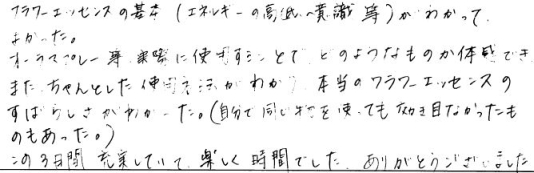 フラワーエッセンスの基本(エネルギーの高低、意識等)がわかって、
よかった。
オーラスプレー等、実際に使用することで、どのようなものか体感でき
また、ちゃんとした使用方法がわかり、本当のフラワーエッセンスの
すばらしさがわかった。(自分で同じ物を使っても効き目なかったも
のもあった。)
この3日間、充実していて、楽しく時間でした。ありがとうございました